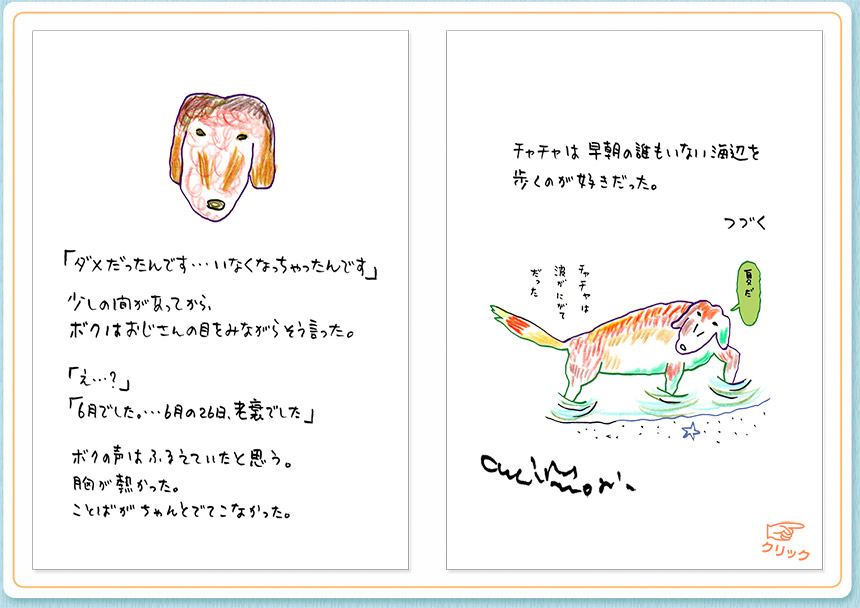 「ダメだったんです…いなくなっちゃったんです」
少しの間があってから、
ボクはおじさんの目をみながらそう言った。
「え…?」
「6月でした。…6月の26日、老衰でした」
ボクの声はふるえていたと思う。
胸が熱かった。
ことばがちゃんとでてこなかった。
チャチャは早朝の誰もいない海辺を
歩くのが好きだった。
つづく
夏だ
チャチャは
波がにがて
だった
クリック